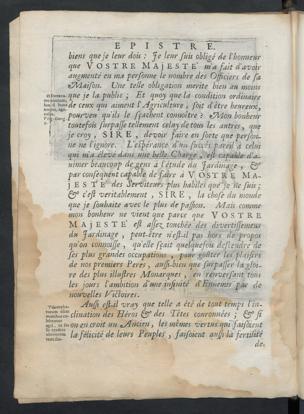 EPISTRE.
biens que je leur dois: Je leur suis obligé de l'honneur
que VOSTRE MAJESTÉ m'a fait d'avoir
augmenté en ma personne le nombre des Officiers de sa
Maison. Une telle obligation merite bien au moins
que je la publie; Et quoy que la condition ordinaire
de ceux qui aiment l'Agriculture, soit d'être heureux,
pourveu qu'ils le sçachent connoître; Mon bonheur
toutefois surpasse tellement celuy de tous les autres, que
je croy, SIRE, devoir faire en sorte que personne
ne l'ignore. L'esperance d'un succés pareil à celui
qui m'a élevé dans une belle Charge, est capable d'animer
beaucoup de gens à l'étude du Jardinage, &
par consequent capable de faire à VOSTRE MAJESTÉ
des Serviteurs plus habiles que je ne suis;
& c'est veritablement, SIRE, la chose du monde
que je souhaite avec le plus de passion. Mais comme
mon bonheur ne vient que parce que VOSTRE
MAJESTÉ est assez touchée des divertissemens
du Jardinage, peut-être n'est-il pas hors de propos
qu'on connoisse, qu'elle sçait quelquefois descendre de
ses plus grandes occupations, pour goûter les plaisirs
de nos premiers Peres, aussi-bien que surpasser la gloire
des plus illustres Monarques, en renversant tous
les jours l'ambition d'une infinité d'Ennemis par de
nouvelles Victoires.
Aussi est-il vray que telle a été de tout temps l'inclination
des Héros & des Têtes couronnées; & si
on en croit un Ancien, les mêmes vertus qui faisoient
la félicité de leurs Peuples, faisoient aussi la fertilité
de